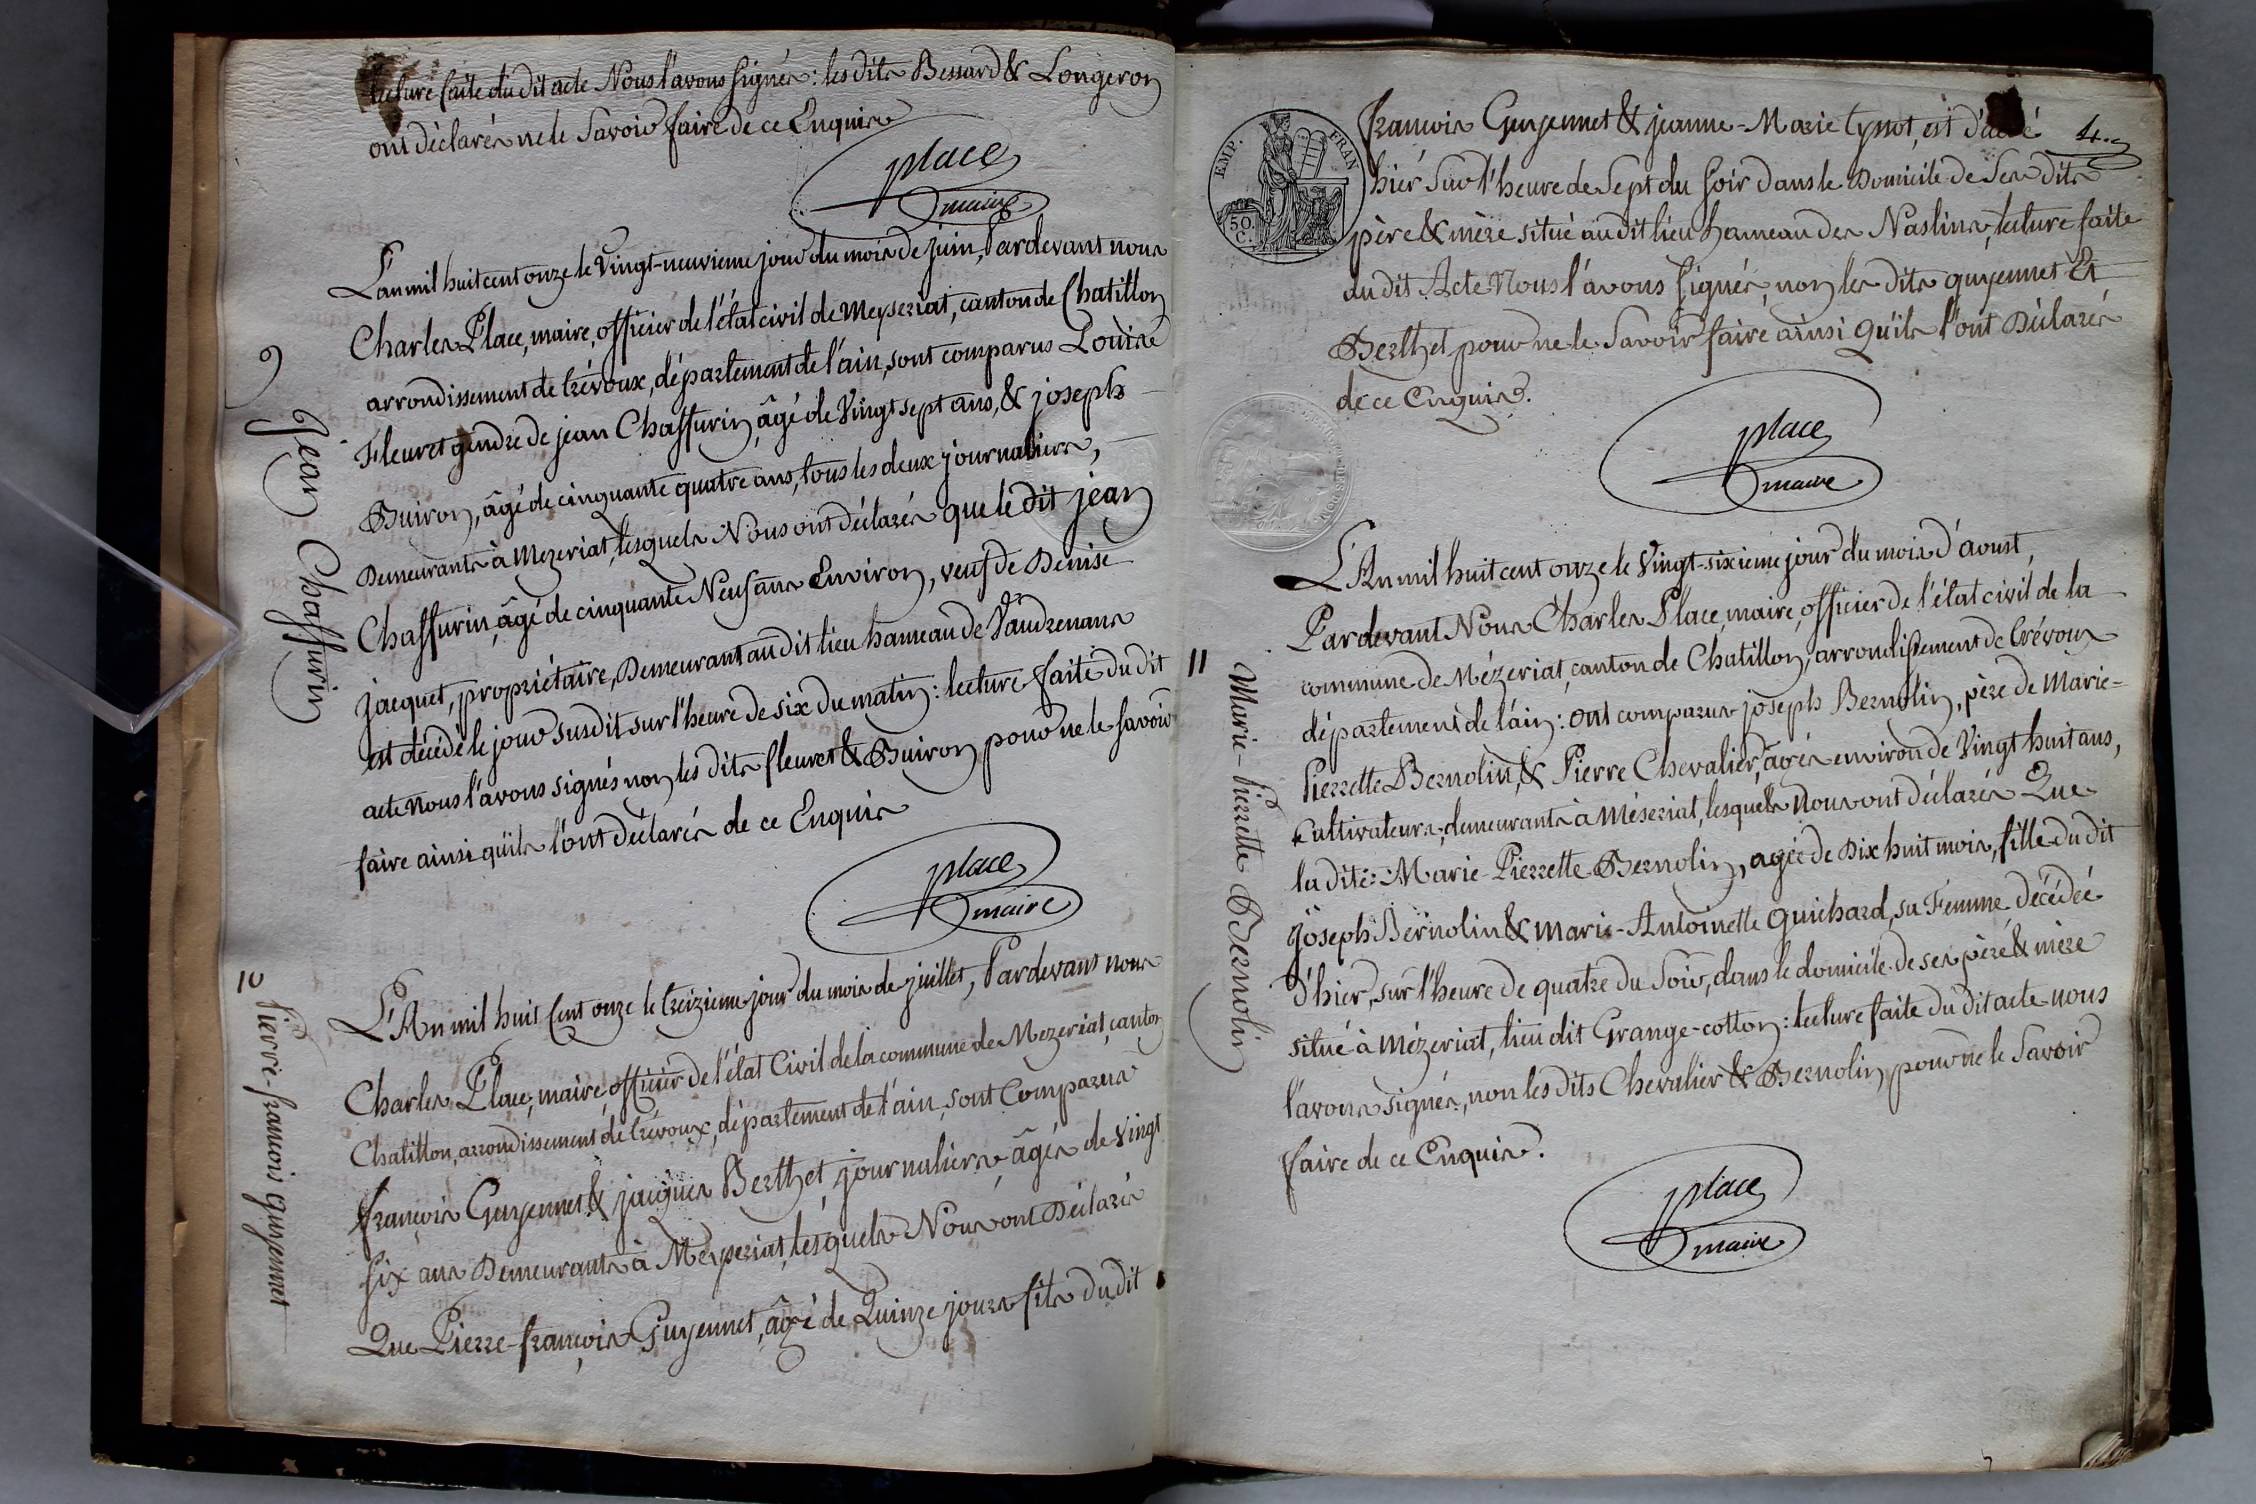 lecture faite du dit acte Nous l'avons signés : les dits Bessard & Longeron
ont déclarés ne le Savoir faire de ce Enquis
place
maire
L'an mil huit cent onze le Vingt-neuvieme jour du mois de juin, Pardevant nous
Charles Place, maire, officier de l'état civil de Meyseriat, canton de Chatillon
arrondissement de trévoux, département de l'ain, sont comparus Louis
Fleuret gendre de jean Chaffurin, âgé de Vingt sept ans, & joseph
Buiron, âgé de cinquante quatre ans, tous les deux journaliers,
Demeurants à Mezeriat, lesquels Nous ont déclarés que le dit jean
Chaffurin, âgé de cinquante Neuf ans Environ, veuf de Denise
Jacquet, propriétaire, Demeurant au dit lieu hameau de Vaudrenans
est décédé le jour susdit sur l'heure de six du matin : lecture faite du dit
acte nous l'avons signés non les dits fleuret & Buiron pour ne le savoir
faire ainsi qu'ils l'ont déclarés de ce Enquis
place
maire
9
Jean Chaffurin
L'An mil huit Cent onze le treizieme jour du mois de juillet, Pardevant nous
Charles Place, maire, officier de l'état Civil de la commune de Mezeriat, canton
Chatillon, arrondissement de trévoux, département de l'ain, sont Comparus
françois Guyennet & jacques Berthet, journaliers, âgés de vingt
six ans Demeurants à Meyseriat, lesquels Nous ont Déclarés
Que Pierre-françois Guyennet, âgé de Quinze jours fils du dit
10
Pierre-francois guyennet
4.
EMP. FRAN
50 C.
françois Guyennet & jeanne-Marie tyssot, est décédé
hiér Sur l'heure de Sept du Soir dans le Domicile de Ses dits
père & mère situé au dit lieu hameau des Naslins, lecture faite
du dit Acte Nous l'avons Signés, non les dits guyennet Et
Berthet pour ne le Savoir faire ainsi Qu'ils l'ont Déclarés
de ce Enquis.
place
maire
L'An mil huit cent onze le Vingt-sixieme jour du mois d'aoust,
Pardevant Nous Charles Place, maire, officier de l'état civil de la
commune de Mézeriat, canton de Chatillon, arrondissement de trévoux
département de l'ain : ont comparus joseph Bernolin, père de Marie-
Pierrette Bernolin, & Pierre Chevalier, âgés environ de Vingt huit ans,
Cultivateurs, demeurants à Méseriat, lesquels Nous ont déclarés Que
la dite : Marie-Pierrette Bernolin, agée de Dix huit mois, fille du dit
joseph Bernolin & marie-Antoinette Guichard, sa Femme décédée
d'hier, sur l'heure de quatre du Soir, dans le domicile de ses père & mère
situé à Mézeriat, lieu dit Grange-cotton : lecture faite du dit acte nous
l'avons signés, non les dits Chevalier & Bernolin, pour ne le Savoir
faire de ce Enquis.
place
maire
11
Marie-Pierrette Bernolin